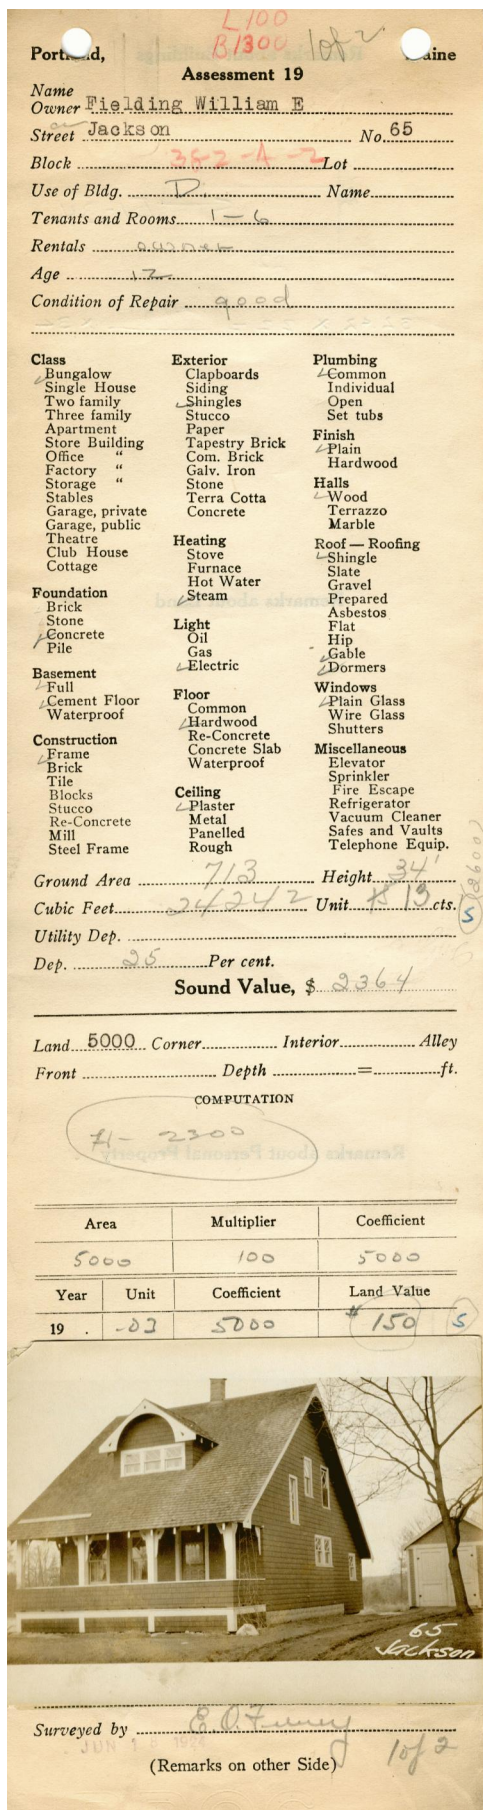 L 100
B 1300 1 of 2
Portland, Maine
Assessment 19
Name
Owner Fielding William E
Street Jackson No. 65
Block 362-A-2 Lot
Use of Bldg. D. Name
Tenants and Rooms 1-6
Rentals owner
Age 12
Condition of Repair good
Class
Bungalow
Single House
Two family
Three family
Apartment
Store Building
Office "
Factory "
Storage "
Stables
Garage, private
Garage, public
Theatre
Club House
Cottage
Foundation
Brick
Stone
Concrete
Pile
Basement
Full
Cement Floor
Waterproof
Construction
Frame
Brick
Tile
Blocks
Stucco
Re-Concrete
Mill
Steel Frame
Exterior
Clapboards
Siding
Shingles
Stucco
Paper
Tapestry Brick
Com. Brick
Galv. Iron
Stone
Terra Cotta
Concrete
Heating
Stove
Furnace
Hot Water
Steam
Light
Oil
Gas
Electric
Floor
Common
Hardwood
Re-Concrete
Concrete Slab
Waterproof
Ceiling
Plaster
Metal
Panelled
Rough
Plumbing
Common
Individual
Open
Set tubs
Finish
Plain
Hardwood
Halls
Wood
Terrazzo
Marble
Roof — Roofing
Shingle
Slate
Gravel
Prepared
Asbestos
Flat
Hip
Gable
Dormers
Windows
Plain Glass
Wire Glass
Shutters
Miscellaneous
Elevator
Sprinkler
Fire Escape
Refrigerator
Vacuum Cleaner
Safes and Vaults
Telephone Equip.
Ground Area 713 Height 34'
Cubic Feet 24242 Unit 13 cts.
S (2600)
Utility Dep.
Dep. 25 Per cent.
Sound Value, $ 2364
Land 5000 Corner Interior Alley
Front Depth = ft.
COMPUTATION
H- 2300
Area Multiplier Coefficient
5000 100 5000
Year Unit Coefficient Land Value
19 . -03 5000 # 150 S
65
Jackson
Surveyed by E. O.
JUN 18 1924
(Remarks on other Side) 1 of 2